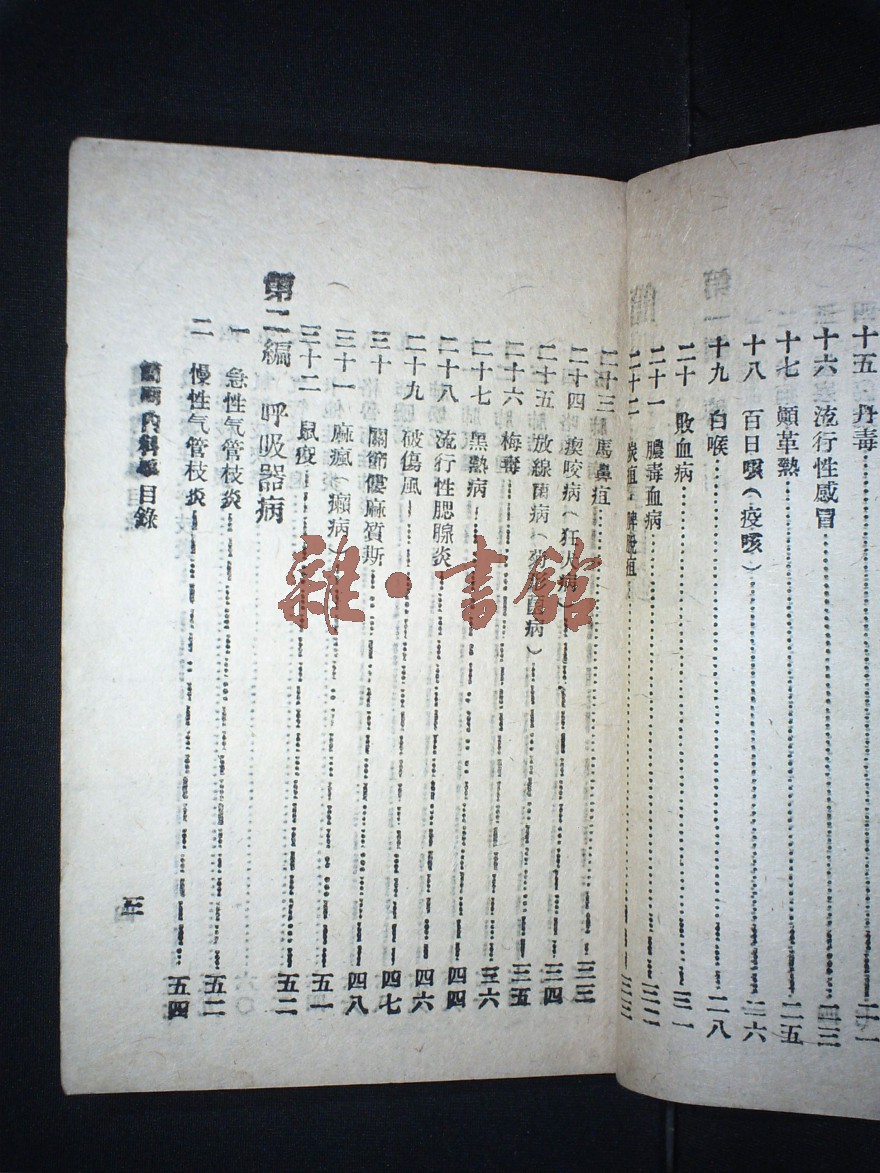 十五 丹毒 二一
十六 流行性感冒 二三
十七 顚革熱 二五
十八 百日咳(疫咳) 二六
十九 白喉 二八
二十 敗血病 三一
二十一 膿毒血病 三二
二十二 炭疽・脾脫疽 三三
二十三 馬鼻疽 三三
二十四 瘈咬病(狂犬病) 三四
二十五 放線菌病( 菌病) 三四
二十六 梅毒 三五
二十七 黑熱病 三六
二十八 流行性腮腺炎 四四
二十九 破傷風 四六
三十 關節僂麻質斯 四七
三十一 麻瘋(癩病) 四八
三十二 鼠疫 五一
第二編 呼吸器病 五二
一 急性气管枝炎 五二
二 慢性气管枝炎 五四
內科學 目錄
三
雜・書館